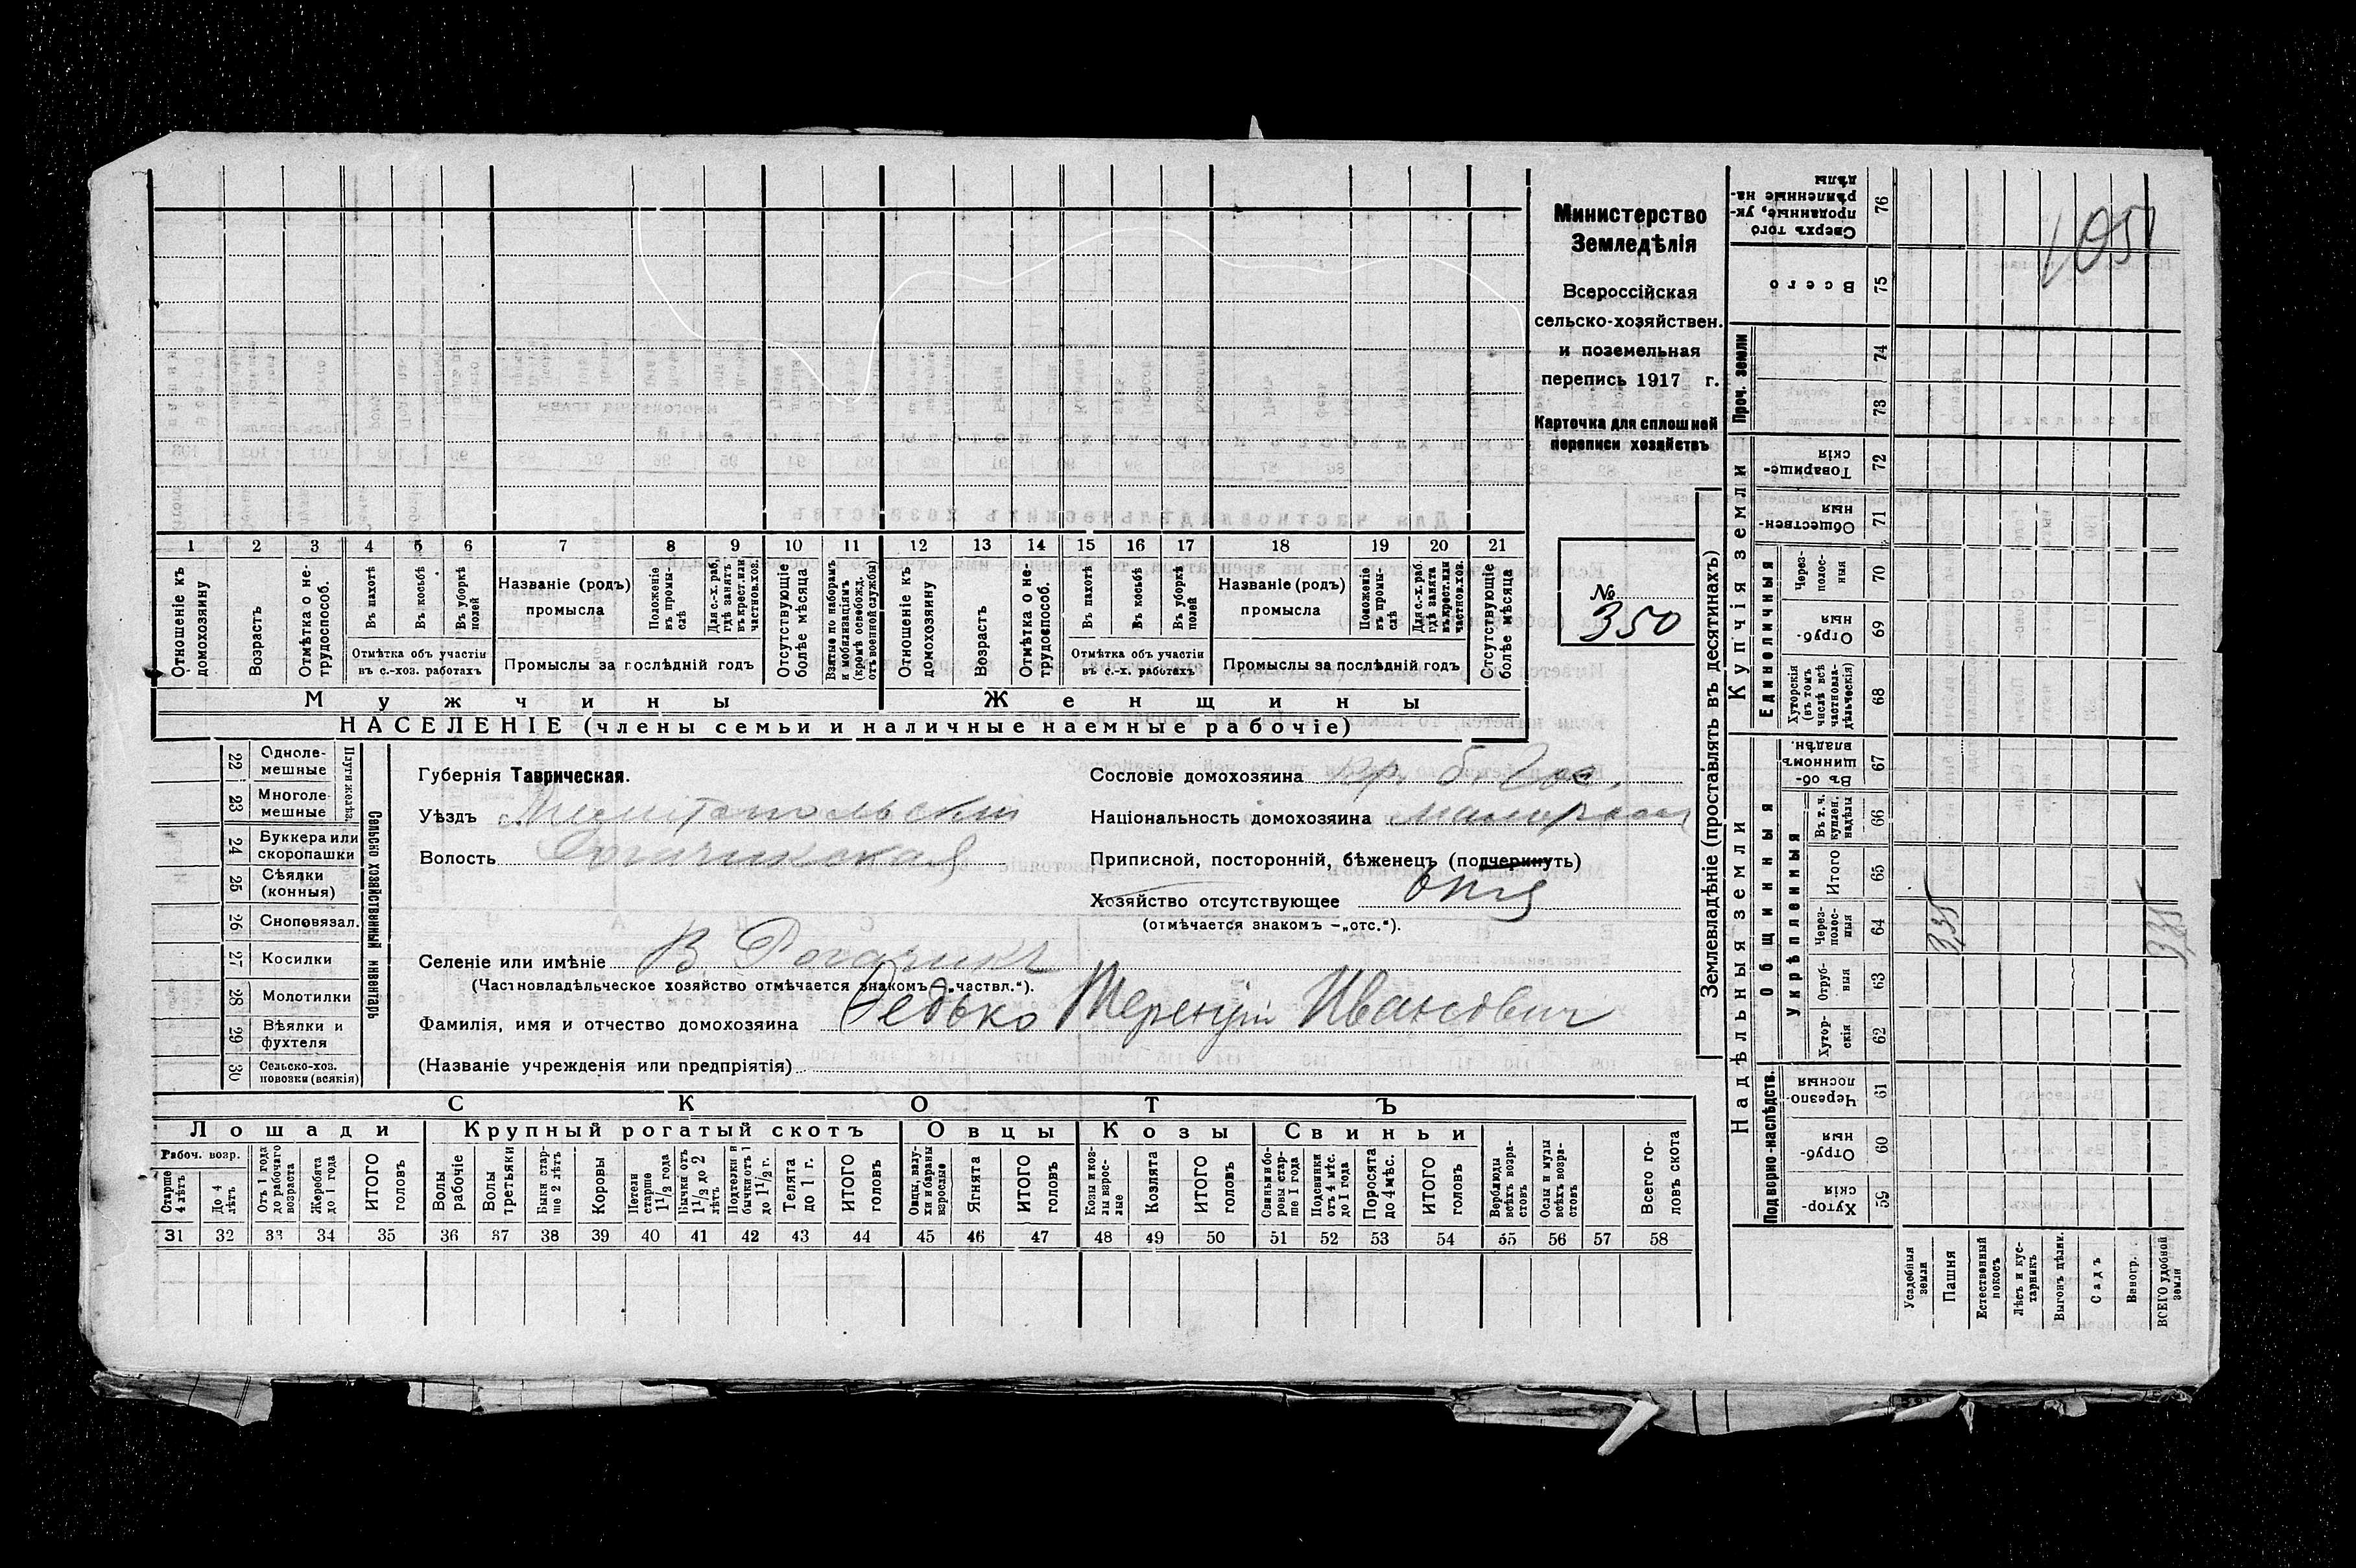 Министерство
Земледѣлія
Всероссійская
сельско-хозяйствен.
и поземельная
перепись 1917 г.
Карточка для сплошной
переписи хозяйствъ
№
350
1 2 3 4 5 6 7 8 9 10 11 12 13 14 15 16 17 18 19 20 21
Отношеніе къ домохозяину
Возрастъ
Отмѣтка о нетрудоспособ.
Въ пахотѣ
Въ косьбѣ
Въ уборкѣ полей
Отмѣтка объ участіи
въ с.-хоз. работахъ
Названіе (родъ)
промысла
Положеніе въ промыслѣ
Для с.-х. раб. гдѣ занятъ въ крест. или частнов. хоз.
Промыслы за послѣдній годъ
Отсутствующіе болѣе мѣсяца
Взятые по наборамъ и мобилизаціямъ (кромѣ освобожд. отъ военной службы)
Отношеніе къ домохозяину
Возрастъ
Отмѣтка о нетрудоспособ.
Въ пахотѣ
Въ косьбѣ
Въ уборкѣ полей
Отмѣтка объ участіи
въ с.-х. работахъ
Названіе (родъ)
промысла
Положеніе въ промыслѣ
Для с.-х. раб. гдѣ занята въ крест. или частнов. хоз.
Промыслы за послѣдній годъ
Отсутствующіе болѣе мѣсяца
Мужчины Женщины
НАСЕЛЕНІЕ (члены семьи и наличные наемные рабочіе)
22 Одноле-
мешные
23 Многоле-
мешные
Плуги желѣз.
24 Буккера или
скоропашки
25 Сѣялки
(конныя)
26 Сноповязал.
27 Косилки
28 Молотилки
29 Вѣялки и
фухтеля
30 Сельско-хоз.
повозки (всякія)
Сельско хозяйственный инвентарь
Губернія Таврическая.
Уѣздъ Мелитопольскій
Волость Рогачинская
Селеніе или имѣніе В. Рогачикъ
(Частновладѣльческое хозяйство отмѣчается знакомъ „частвл.“).
Фамилія, имя и отчество домохозяина Редько Терентій Ивановичъ
(Названіе учрежденія или предпріятія)
Сословіе домохозяина кр. б. Гос.
Національность домохозяина малоросс
Приписной, посторонній, бѣженецъ (подчеркнуть)
Хозяйство отсутствующее
(отмѣчается знакомъ –„отс.“).
СКОТЪ
Лошади Крупный рогатый скотъ Овцы Козы Свиньи
Рабоч. возр.
Старше 4 лѣтъ
До 4 лѣтъ
Отъ 1 года до рабочаго возраста
Жеребята до 1 года
ИТОГО головъ
Волы рабочіе
Волы третьяки
Быки старше 2 лѣтъ
Коровы
Нетели старше 1 1/2 года
Бычки отъ 1 1/2 до 2 лѣтъ
Подтелки и бычки отъ 1 до 1 1/2 г.
Телята до 1 г.
ИТОГО головъ
Овцы, валухи и бараны взрослые
Ягнята
ИТОГО головъ
Козы и козлы взрослые
Козлята
ИТОГО головъ
Свиньи и боровы старше 1 года
Подсвинки отъ 4 мѣс. до 1 года
Поросята до 4 мѣс.
ИТОГО головъ
Верблюды всѣхъ возрастовъ
Ослы и мулы всѣхъ возрастовъ
Всего головъ скота
31 32 33 34 35 36 37 38 39 40 41 42 43 44 45 46 47 48 49 50 51 52 53 54 55 56 57 58
Землевладѣніе (проставлять въ десятинахъ)
Надѣльныя земли Купчія земли
Проч. земли
Подворно-наслѣдств.
Общинныя
Укрѣпленныя
Единоличныя
76 Сверхъ того проданные, укрѣпленные надѣлы
75 Всего
74
73
72 Товарищескія
71 Общественныя
70 Черезполосныя
69 Отрубныя
68 Хуторскія (въ томъ числѣ всѣ частновладѣльческія)
67 Въ общинномъ владѣн.
66 Въ т. ч. куплен. надѣлы
65 Итого
64 Черезполосныя
63 Отрубныя
62 Хуторскія
61 Черезполосныя
60 Отрубныя
59 Хуторскія
Усадебныя земли
Пашня
Естественный покосъ
Лѣсъ и кустарникъ
Выгонъ цѣлин.
Садъ
Виногр.
ВСЕГО удобной земли
105